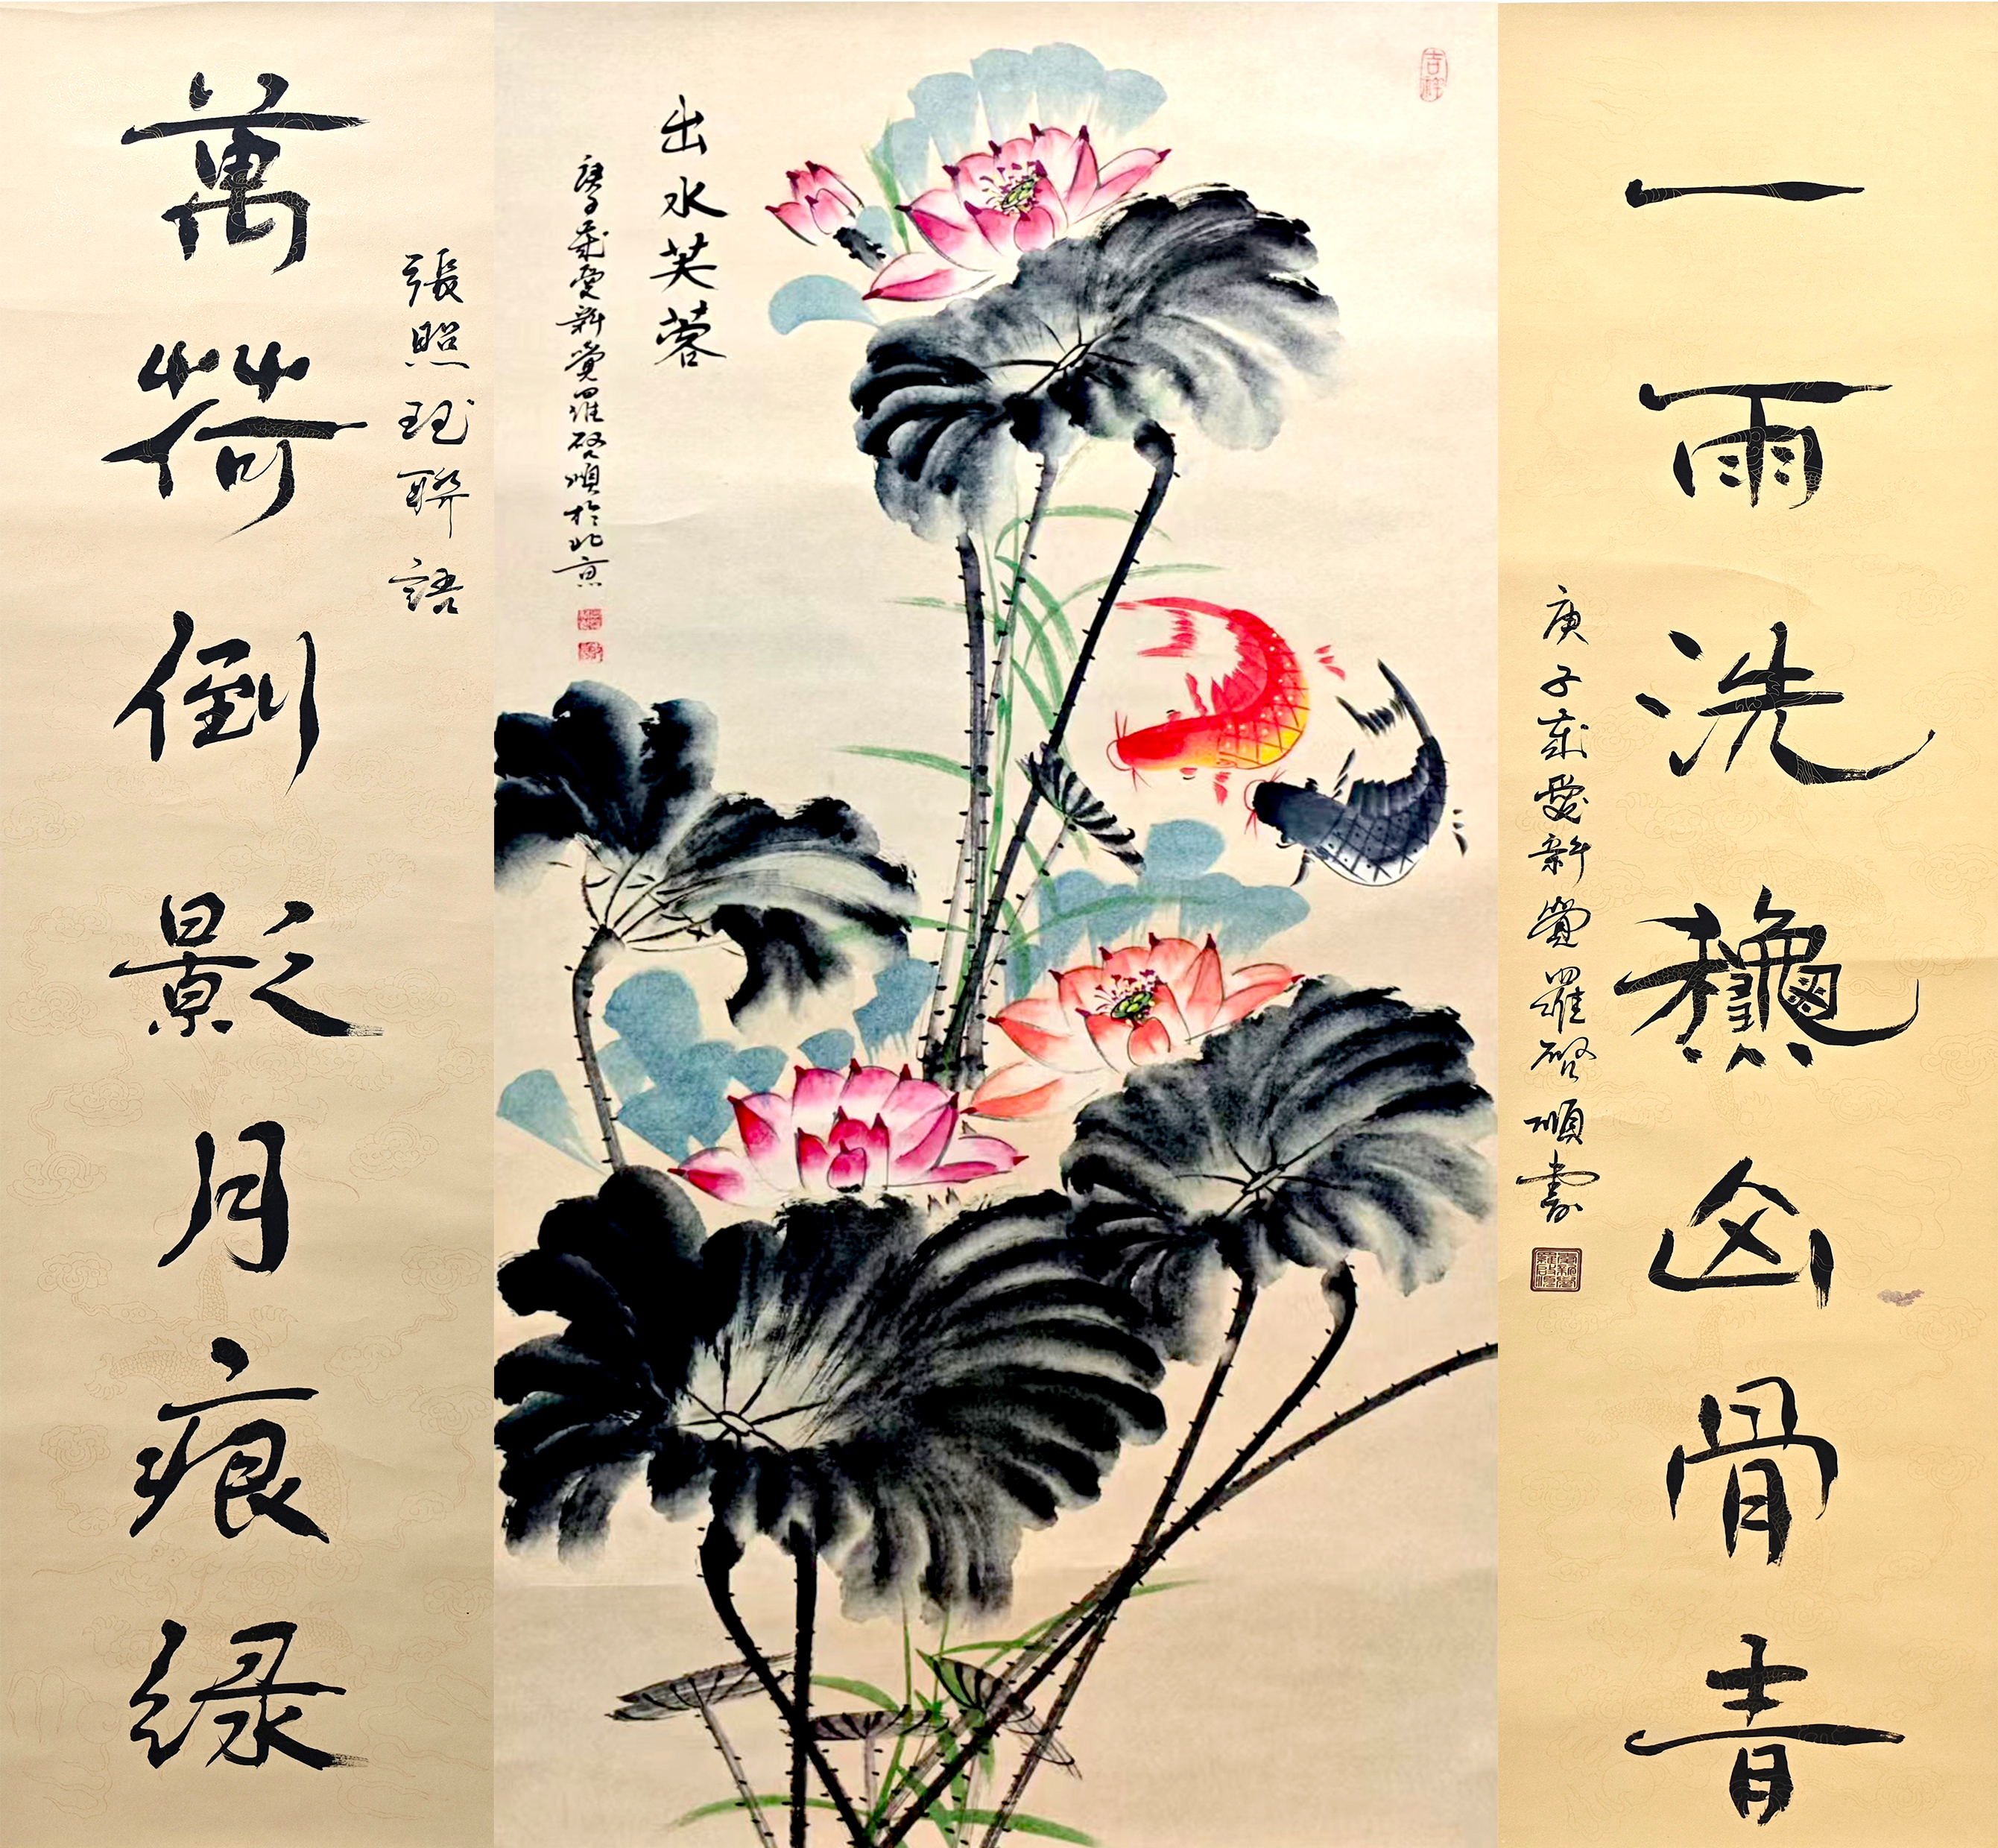 一雨洗龝山骨青
庚子歲愛新覺羅啓順書
吉祥
出水芙蓉
庚子歲愛新覺羅啓順於北京
張照聯語
萬荷倒影月痕緑